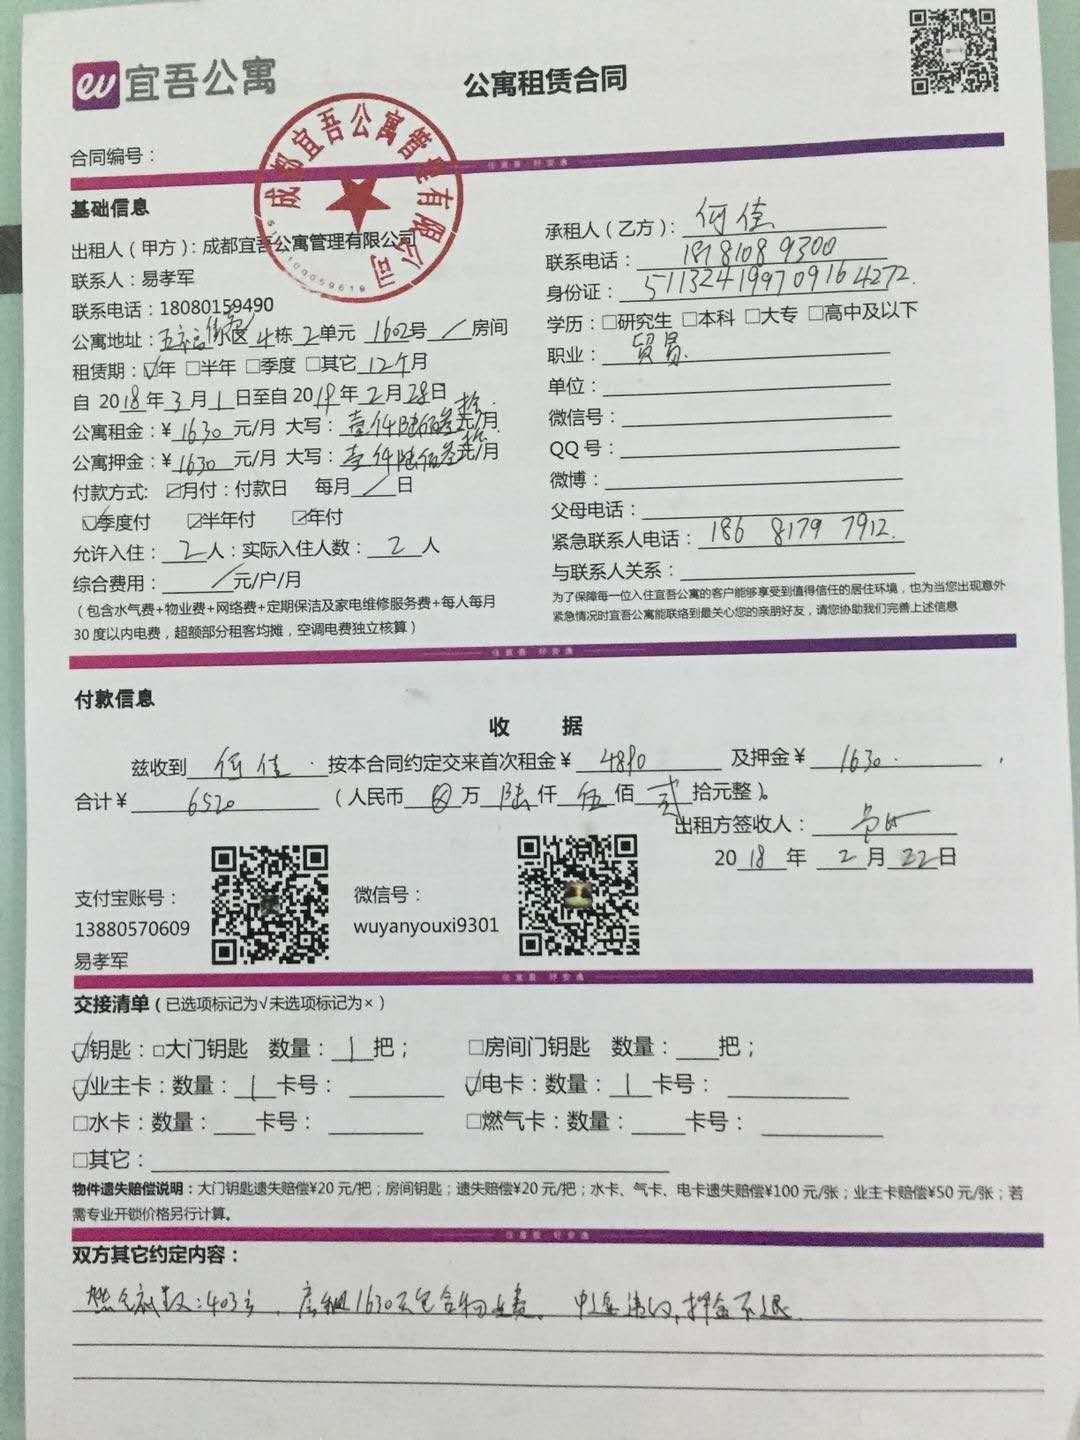 eu 宜吾公寓
公寓租赁合同
成都宜吾公寓管理有限公司
合同编号：
住宜吾 好安逸
基础信息
出租人（甲方）：成都宜吾公寓管理有限公司
联系人：易孝军
联系电话：18080159490
公寓地址： 4栋 2单元 1602号 / 房间
租赁期：☑年 □半年 □季度 □其它 12个月
自 2018年3月1日至自2019年2月28日
公寓租金：¥1630元/月 大写：壹仟陆佰叁拾元/月
公寓押金：¥1630元/月 大写：壹仟陆佰叁拾元/月
付款方式： ☑月付：付款日 每月 / 日
☑季度付 ☑半年付 ☑年付
允许入住：2人：实际入住人数：2人
综合费用： / 元/户/月
（包含水气费+物业费+网络费+定期保洁及家电维修服务费+每人每月
30度以内电费，超额部分租客均摊，空调电费独立核算）
承租人（乙方）：何佳
联系电话：18781089300
身份证：511324199709164272
学历：□研究生 □本科 □大专 □高中及以下
职业：贸易
单位：
微信号：
QQ号：
微博：
父母电话：
紧急联系人电话：186 8179 7912
与联系人关系：
为了保障每一位入住宜吾公寓的客户能够享受到值得信任的居住环境，也为当您出现意外
紧急情况时宜吾公寓能联络到最关心您的亲朋好友，请您协助我们完善上述信息
住宜吾 好安逸
付款信息
收 据
兹收到 何佳 按本合同约定交来首次租金¥ 4890 及押金¥ 1630
合计¥ 6520 （人民币 万 陆 仟 伍 佰 贰 拾元整）。
出租方签收人：
2018年 2月22日
支付宝账号：
13880570609
易孝军
微信号：
wuyanyouxi9301
住宜吾 好安逸
交接清单（已选项标记为√未选项标记为×）
☑钥匙：□大门钥匙 数量：1把； □房间门钥匙 数量： 把；
☑业主卡：数量：1卡号： ☑电卡：数量：1卡号：
□水卡：数量： 卡号： □燃气卡：数量： 卡号：
□其它：
物件遗失赔偿说明：大门钥匙遗失赔偿¥20元/把；房间钥匙；遗失赔偿¥20元/把；水卡、气卡、电卡遗失赔偿¥100元/张；业主卡赔偿¥50元/张；若
需专业开锁价格另行计算。
住宜吾 好安逸
双方其它约定内容：
燃气底数：403方，房租1630元包含物业费。中途违约，押金不退